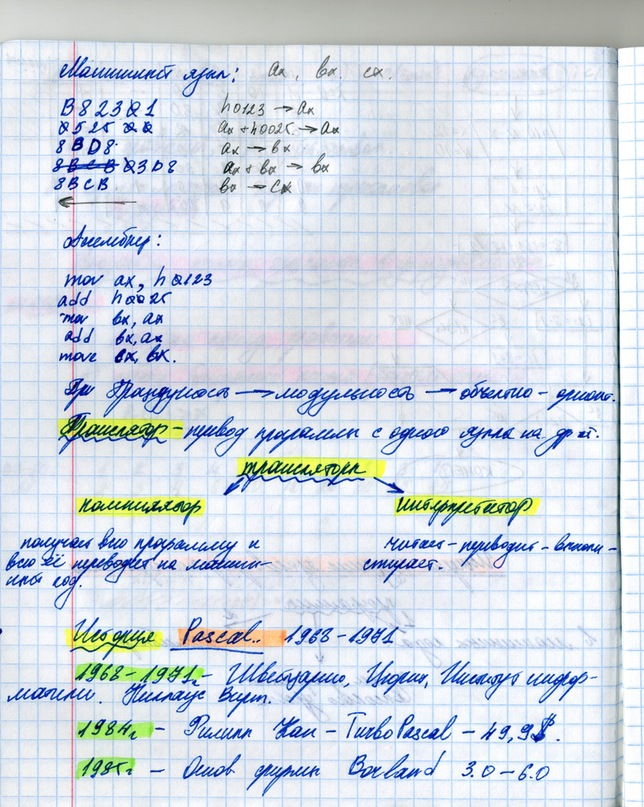 Машинный язык: ax, bx. cx.
B8 23 01 h0123 → ax
05 25 00 ax + h0025 → ax
8BD8 ax → bx
03D8 ax + bx → bx
8BCB bx → cx
Ассемблер:
mov ax, h0123
add h0025
mov bx, ax
add bx, ax
move cx, bx.
→ модульность → объектно - ориент.
Транслятор - перевод программы с одного языка на другой.
трансляторы
компилятор интерпретатор
получает всю программу и читает - переводит -
всю её переводит на машин-
ный код. стирает.
История Pascal.. 1968-1971
1968-1971г - Швейцария, Цюрих, Институт инфор-
матики. Никлаус Вирт.
1984г - Филипп Кан - Turbo Pascal - 49,9$.
1985г - Основ фирмы Borland 3.0-6.0